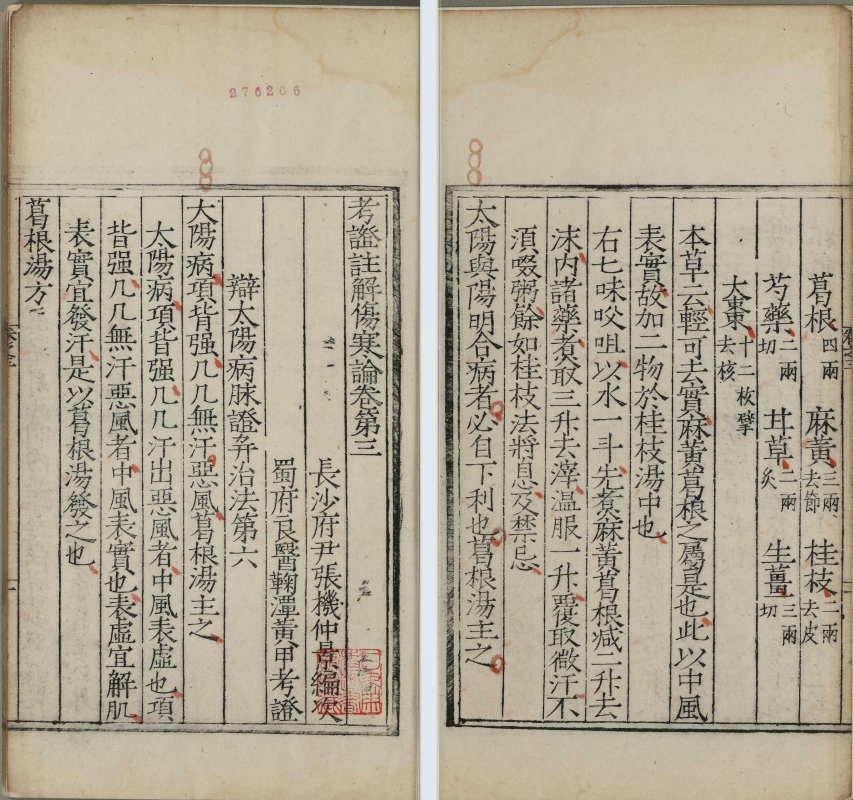 276206
考證註解傷寒論卷第三
長沙府尹張機仲景編次
蜀府良醫鞠潭黃甲考證
辯太陽病脉證并治法第六
大陽病項背强几几無汗惡風葛根湯主之
太陽病項背强几几汗出惡風者中風表虛也項
背强几几無汗惡風者中風表實也表虛宜解肌
表實宜發汗是以葛根湯發之也
葛根湯方
葛根四兩 麻黃三兩去節 桂枝二兩去皮
芍藥二兩切 甘草二兩炙 生薑三兩切
大棗十二枚擘去核
本草云輕可去實麻黃葛根之屬是也此以中風
表實故加二物於桂枝湯中也
右七味㕮咀以水一斗先煮麻黃葛根減二升去
沫內諸藥煮取三升去滓溫服一升覆取微汗不
須啜粥餘如桂枝法將息及禁忌
太陽與陽明合病者必自下利也葛根湯主之